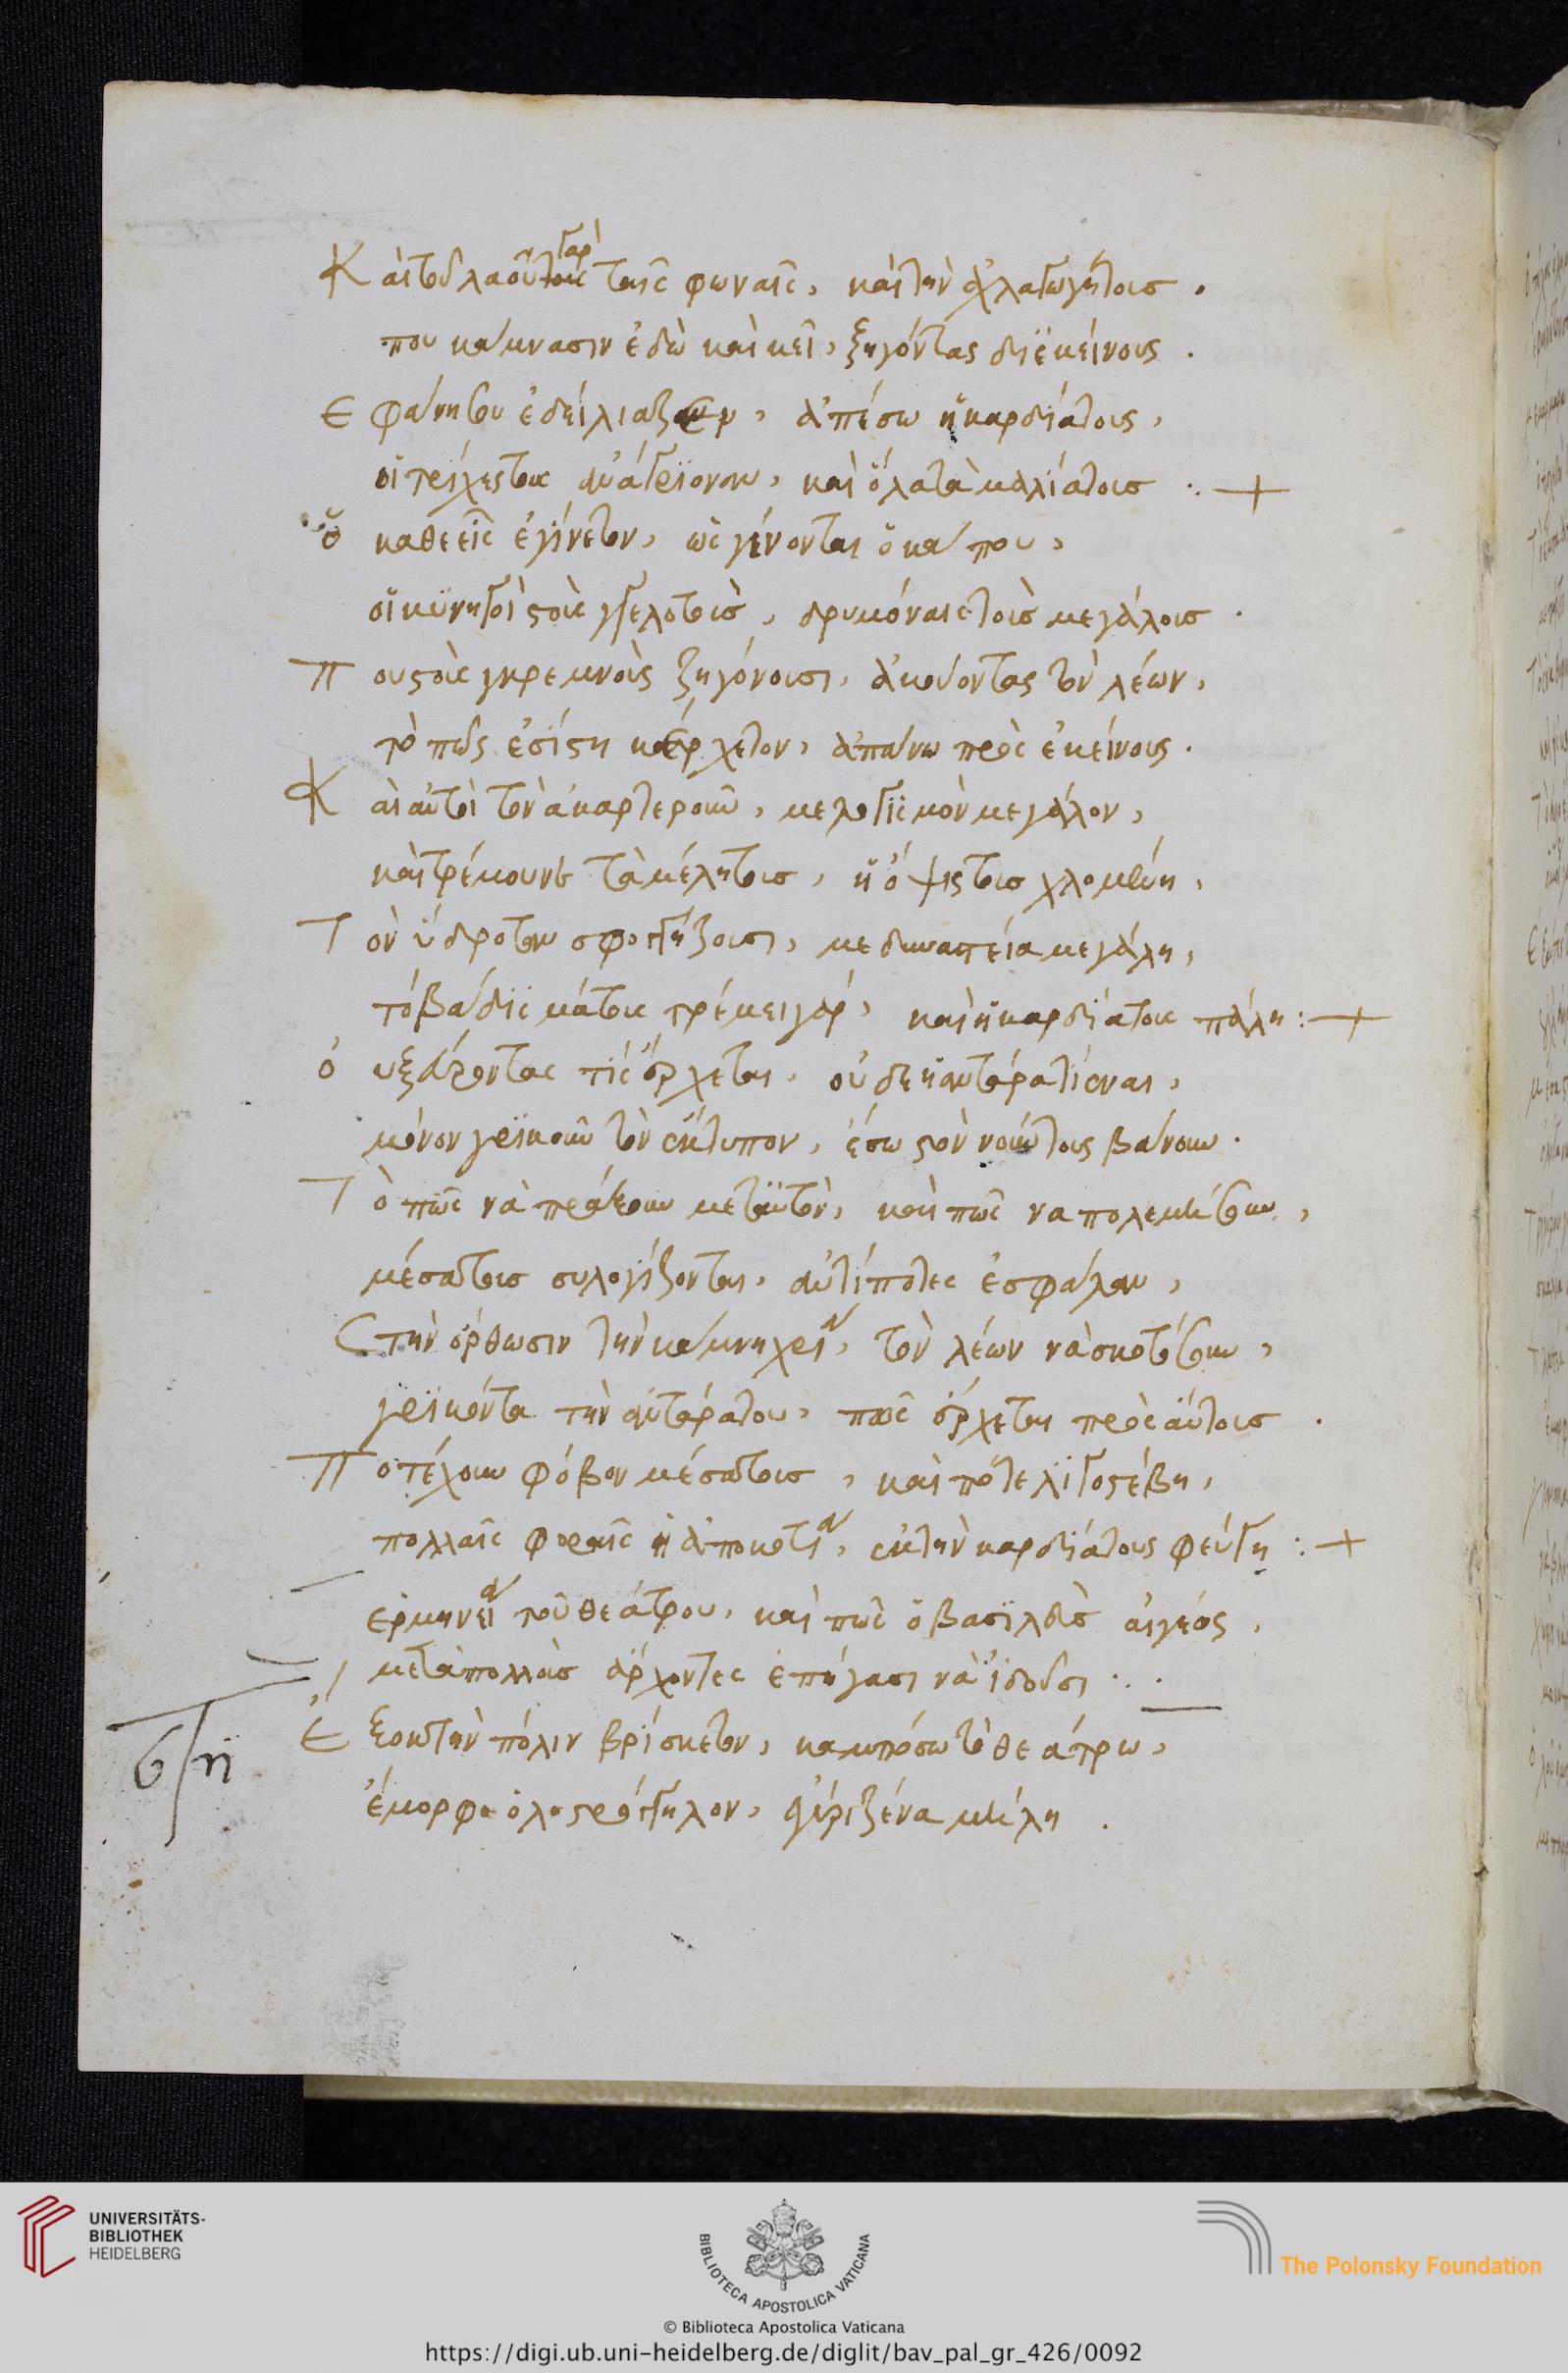 Κ αὶ τοῦ λαοῦ τους γὰρ ταῖς φωναῖς, καὶ τὴν ἀλαγωγήτοισ.
που κάμνασιν ἐδὼ καὶ κεῖ, ξηγόντας δϊ ἐκείνους.
Ε φαίνητον ἐδείλιαζεν, ἀπέσω ἡ καρδϊάτους,
οἱ τρίχες τους ἀνάγρϊοναν, καὶ ὅλα τὰ μαλίατοισ :.
ὅ καθεεῖς ἐγίνετον, ὡς γίνονται ὅ κάπου,
οἱ κϋνηγοὶ στοὺς ὑψελοτοὶσ, δρυμόναις τοὶσ μεγάλοισ.
Π ου στοὺς γκρεμνοὺς ξηγόνουσι, ἀκούοντας τὸν λέων,
τὸ πῶς ἐσίστη κ' ἔρχετον, ἀπάνω πρὸς ἐκείνους.
Κ αὶ αὐτοὶ τὸν ἀκαρτεροῦν, με λογϊσμὸν μεγάλον,
καὶ τρέμουνε τὰ μέλητοισ, ἡ ὄψις τοισ χλομένη,
Τ ὸν ὕδροταν σφογγίζουσι, με δυναστεία μεγάλη,
τὸ βάδϊσμάτους τρέμει γὰρ, καὶ ἡ καρδϊάτους πάλη :
ὁ υξεύροντας τίς ἔρχεται, οὐδὲ ἡ ἀνταράτίσναι,
μόνον γρϊκοῦν τὸν κτύπον, ἔσω στὸν νοῦντους βάνουν.
Τ ὸ πῶς νὰ πράξουν μεταϋτὸν, καὶ πῶς να πολεμίσουν,
μέσατοισ συλογίζονται, ἀντίποτες ἐσφάλαν,
Στὴν ὀρθωσιν τὴν κάμνη χρεία, τὸν λέων νὰ σκοτόσουν,
γρϊκόντα τὴν ἀνταράτου, πῶς ἔρχεται πρὸς αὔτοισ.
Π οτέχουν φόβον μέσατοισ, καὶ πότε λϊγοστέβη,
πολλαῖς φοραῖς ἡ ἀποκοτιὰ, ἐκ τὴν καρδϊάτους φεύγη :
ἑρμηνεία τοῦ θεάτρου, καὶ πῶς ὁ βασϊλεὺσ αἰγέος,
μετὰ πολλοὺσ ἄρχοντες ἐπήγασι νὰ ἰδοῦσι :.
Ἐ ξου ἐκ τὴν πόλιν βρίσκετον, καμπόσω τὸ θεάτρω,
ἔμορφο ὁλοστρόγγηλον,

UNIVERSITÄTS-
BIBLIOTHEK
HEIDELBERG
BIBLIOTECA APOSTOLICA VATICANA
The Polonsky Foundation
© Biblioteca Apostolica Vaticana
https://digi.ub.uni-heidelberg.de/diglit/bav_pal_gr_426/0092